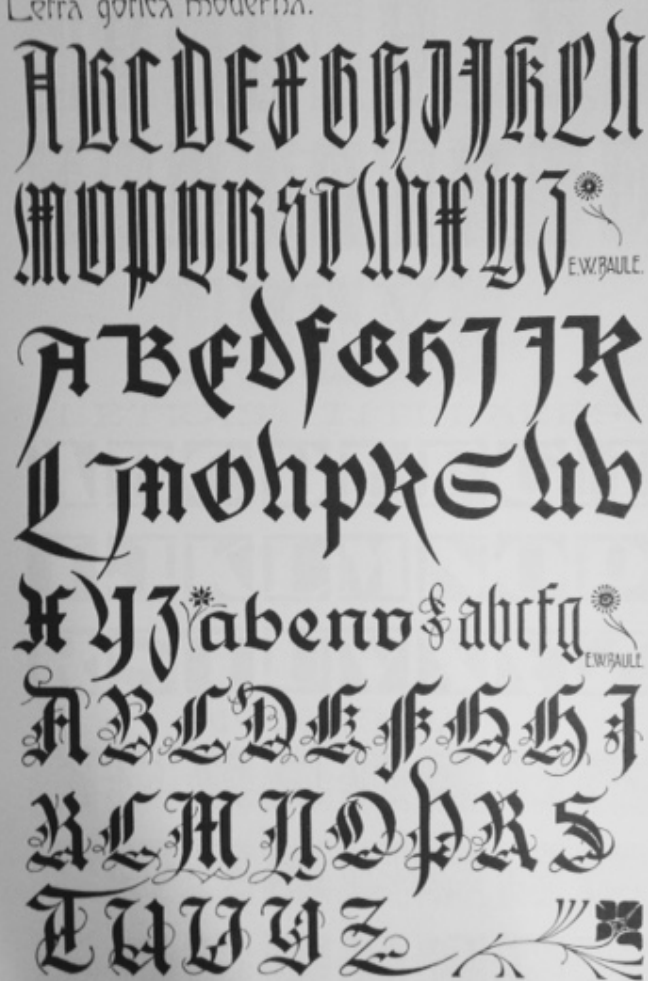 Letra gótica moderna.
A B C D E F G H I J K L N
M O P Q R S T U V X Y Z
E.W.BAULE.
A B E d f G H I J K
L M O h p R S U V
X Y Z abeno abcfg
E.W.BAULE.
A B C D E F G H I
K L M N O P R S
T U V Y Z